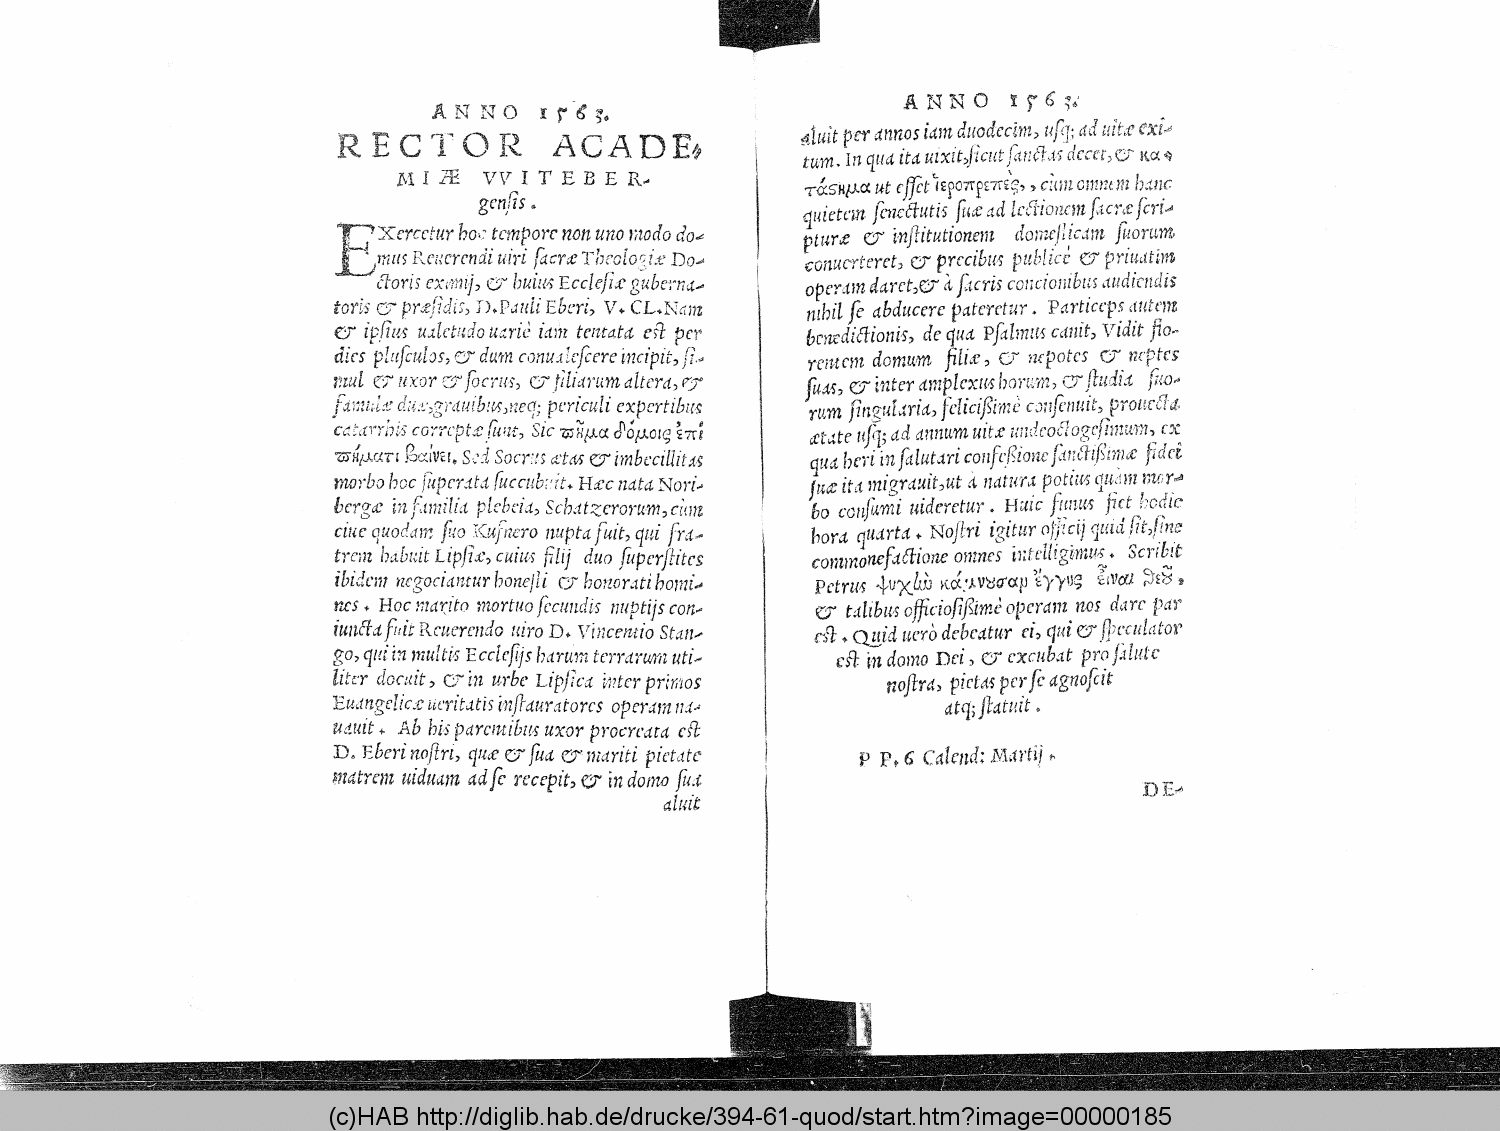 ANNO 1563.
RECTOR ACADE-
MIÆ VVITEBER-
genſis.
EXercetur hoc tempore non uno modo do-
mus Reuerendi uiri ſacræ Theologiæ Do-
ctoris eximij, & huius Eccleſiæ guberna-
toris & præſidis, D. Pauli Eberi, V. CL. Nam
& ipſius ualetudo uariè iam tentata eſt per
dies pluſculos, & dum conualeſcere incipit, ſi-
mul & uxor & ſocrus, & filiarum altera, &
famulæ duæ, grauibus, neq; periculi expertibus
catarrhis correptæ ſunt, Sic πῆμα δόμοις ἐπὶ
πήματι βαίνει. Sed Socrus ætas & imbecillitas
morbo hoc ſuperata ſuccubuit. Hæc nata Nori-
bergæ in familia plebeia, Schatzerorum, cùm
ciue quodam ſuo Kuſnero nupta fuit, qui fra-
trem habuit Lipſiæ, cuius filij duo ſuperſtites
ibidem negociantur honeſti & honorati homi-
nes. Hoc marito mortuo ſecundis nuptijs con-
iuncta fuit Reuerendo uiro D. Vincentio Stan-
go, qui in multis Eccleſijs harum terrarum uti-
liter docuit, & in urbe Lipſica inter primos
Euangelicæ ueritatis inſtauratores operam na-
uauit. Ab his parentibus uxor procreata eſt
D. Eberi noſtri, quæ & ſua & mariti pietate
matrem uiduam ad ſe recepit, & in domo ſua
aluit
ANNO 1563.
aluit per annos iam duodecim, uſq; ad uitæ exi-
tum. In qua ita uixit, ſicut ſanctas decet, & κα-
τάστημα ut eſſet ἱεροπρεπές, cùm omnem hanc
quietem ſenectutis ſuæ ad lectionem ſacræ ſcri-
pturæ & inſtitutionem domeſticam ſuorum
conuerteret, & precibus publicè & priuatim
operam daret, & à ſacris concionibus audiendis
nihil ſe abducere pateretur. Particeps autem
benedictionis, de qua Pſalmus canit, Vidit flo-
rentem domum filiæ, & nepotes & neptes
ſuas, & inter amplexus horum, & ſtudia ſuo-
rum ſingularia, feliciſſimè conſenuit, prouecta
ætate uſq; ad annum uitæ undeoctogeſimum, ex
qua heri in ſalutari confeſſione ſanctiſſimæ fidei
ſuæ ita migrauit, ut à natura potius quàm mor-
bo conſumi uideretur. Huic funus fiet hodie
hora quarta. Noſtri igitur officij quid ſit, ſine
commonefactione omnes intelligimus. Scribit
Petrus ψυχὴν κάμνουσαν ἔγγυς εἶναι θεοῦ,
& talibus officioſiſſimè operam nos dare par
eſt. Quid uerò debeatur ei, qui & ſpeculator
eſt in domo Dei, & excubat pro ſalute
noſtra, pietas per ſe agnoſcit
atq; ſtatuit.
P P. 6 Calend: Martij.
DE-
(c)HAB http://diglib.hab.de/drucke/394-61-quod/start.htm?image=00000185